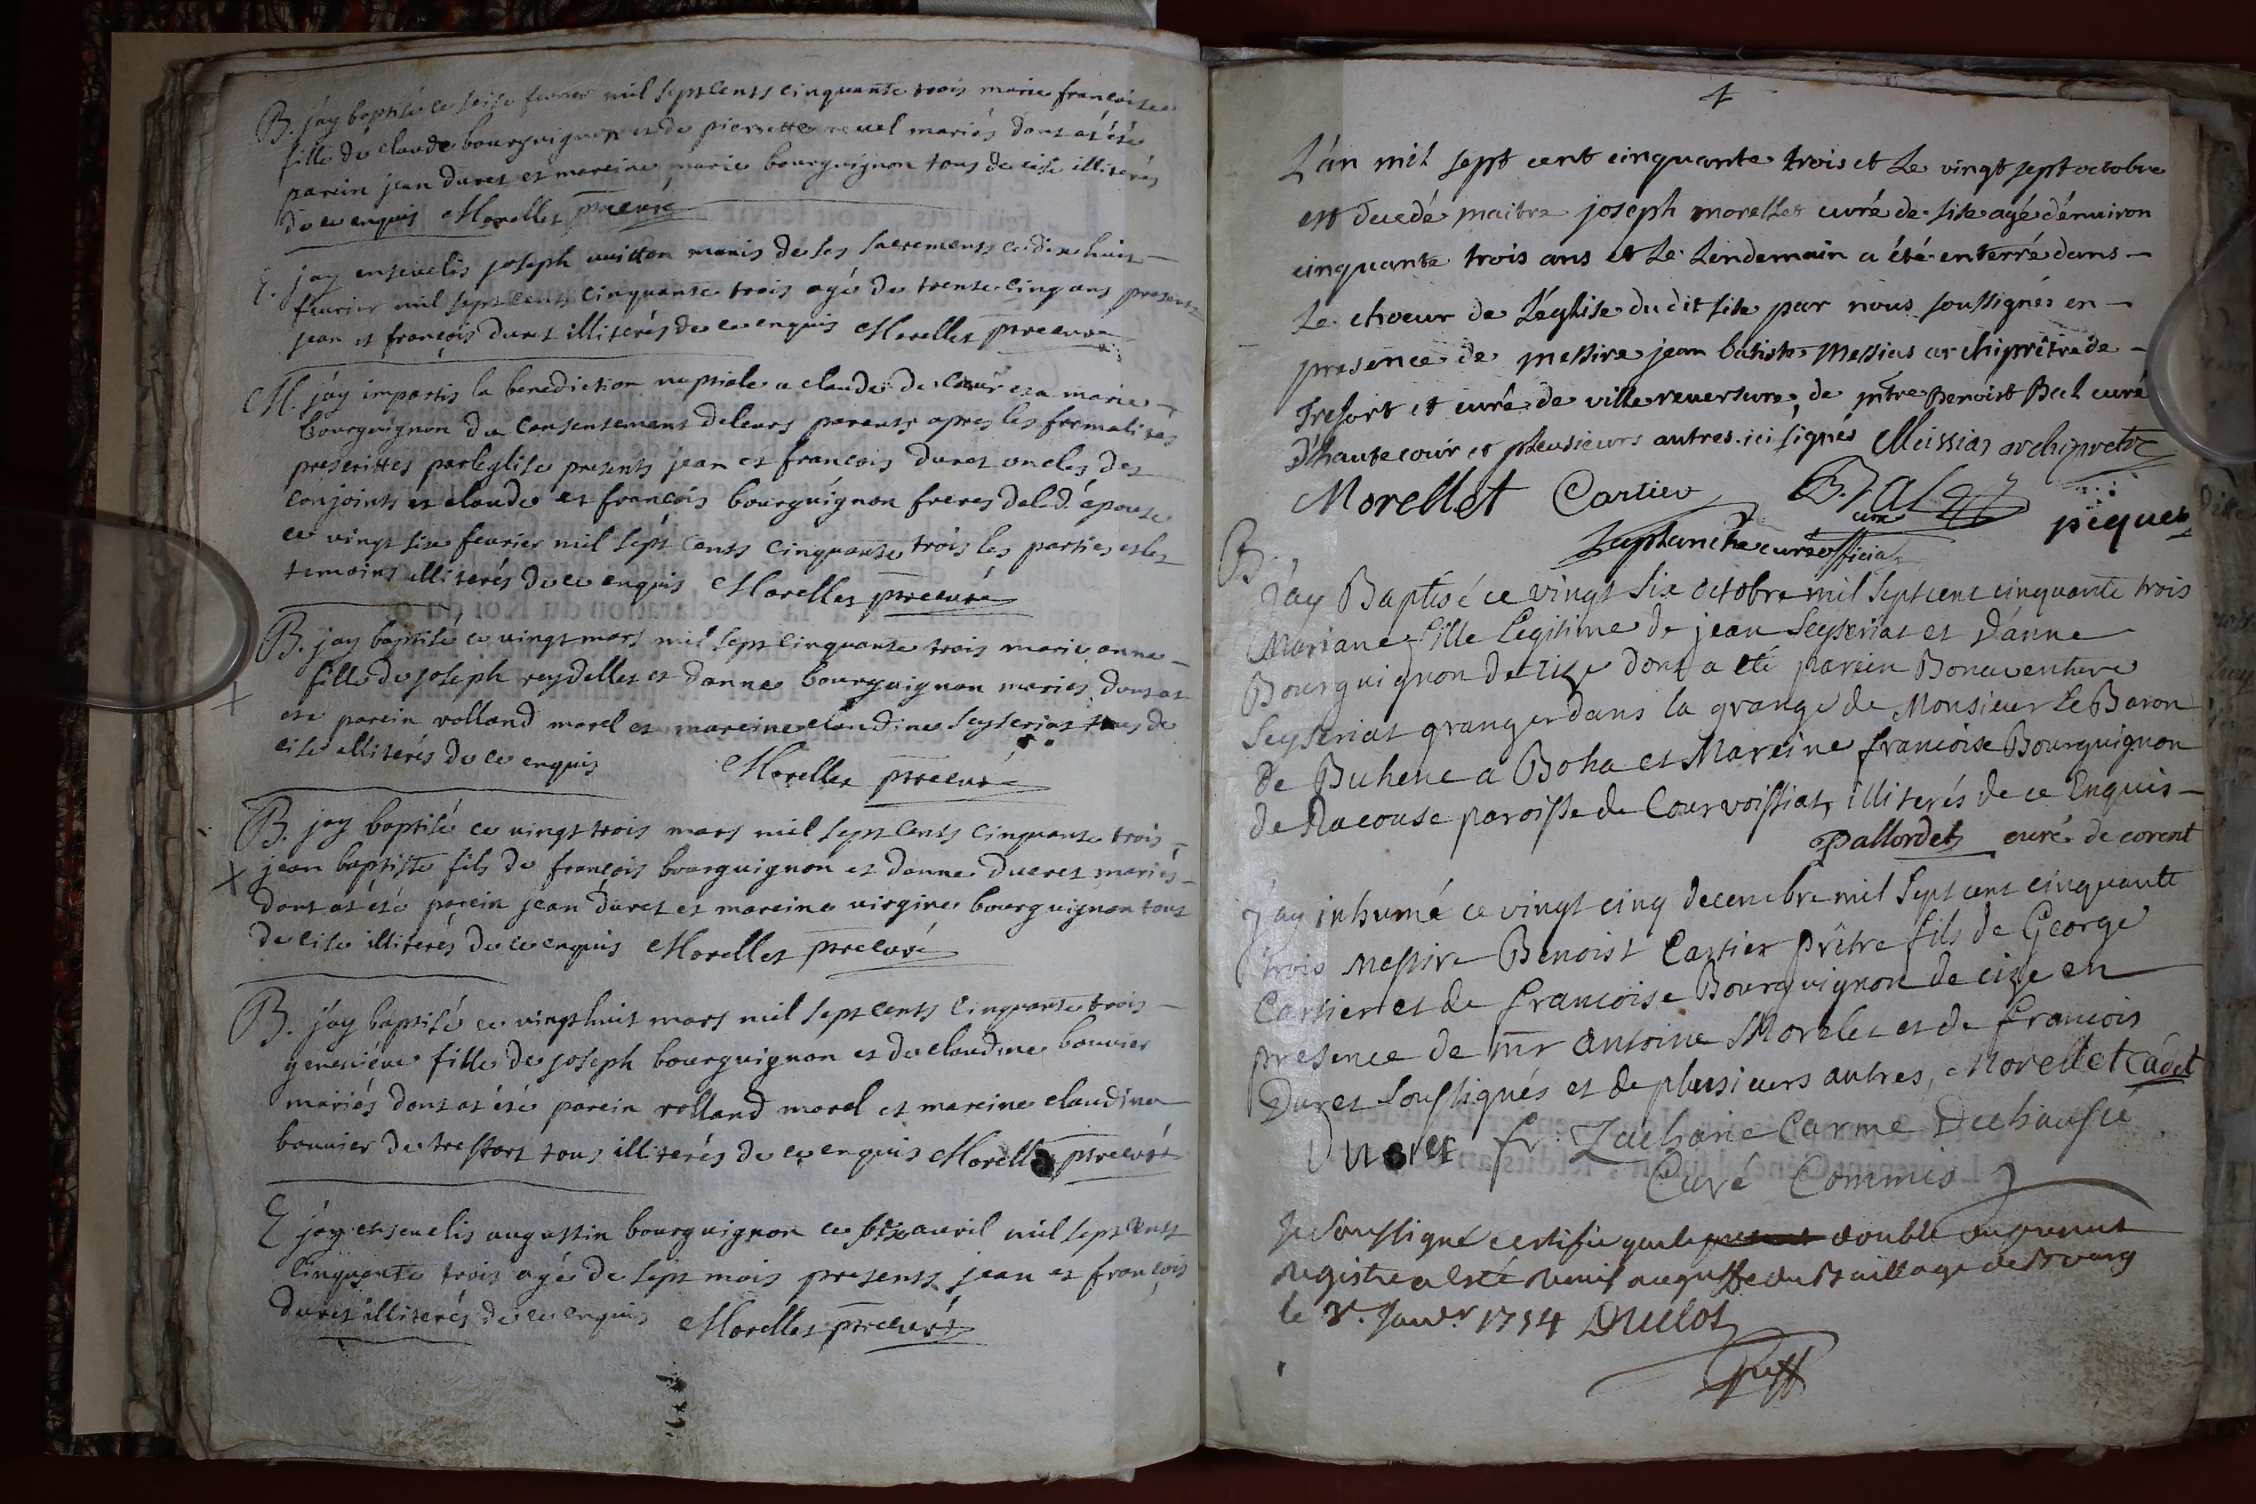 B. jay baptisé ce seise feurier mil septcents cinquante trois marie françoise
fille de claude bourguignon et de pierrette reuel mariés dont at été
parein jean duret et mareine marie bourguignon tous de cise illiterés
de ce enquis Morellet ptre curé
E. jay enseuelis joseph muis de ses sacrements ce dixe huit
feurier mil septcents cinquante trois agé de trente cinq ans presents
jean et françois duret illiterés de ce enquis Morellet ptre curé
M. jay impartis la benediction nuptiale a claude et a marie
bourguignon du consentement de leurs parents apres les formalites
prescrittes par leglise presents jean et françois duret oncles des
conjoints et claude et françois bourguignon freres de la d. épouse
ce vingt six feurier mil sept cents cinquante trois les parties et les
temoins illiterés de ce enquis Morellet ptre curé
B. jay baptisé ce vingt mars mil sept cinquante trois marie anne
fille de joseph reydellet et danne bourguignon mariés dont at
été parein rolland morel et mareine claudine seyseriat tous de
cise illiterés de ce enquis Morellet ptre curé
B. jay baptisé ce vingt trois mars mil sept cents cinquante trois
X jean baptiste fils de françois bourguignon et danne dueret mariés
dont at été parein jean duret et mareine virgine bourguignon tous
de cise illiterés de ce enquis Morellet ptre curé
B. jay baptisé ce vingt huit mars mil sept cents cinquante trois
geneuiéue fille de joseph bourguignon et de claudine bouuier
mariés dont at été parein rolland morel et mareine claudine
bouuier de tresfort tous illiterés de ce enquis Morellet ptre curé
E jay enseuelis augustin bourguignon ce auril mil sept cents
cinquante trois agé de sept mois presents jean et françois
duret illiterés de ce enquis Morellet ptre curé
L'an mil sept cent cinquante trois et le vingt sept octobre
est decedé maitre joseph morellet curé de sise agé d'enuiron
cinquante trois ans et le lendemain a été enterré dans
le choeur de l'église du dit sise par nous soussignés en
presence de messire jean batiste Messias archiprêtre de
Tresfort et curé de villereuersure, de mtre Benoist Bal curé
d'hautecour et pleusieurs autres ici signés Meissias archipretre
Morellet Cartier B. Bal curé piquet
Laplanche curé official
B.
J'ay Baptisé ce vingt six octobre mil sept cent cinquante trois
Mariane fille Legitime de jean Seyseriat et d'anne
Bourguignon de cise dont a eté parein Bonaventure
Seyseriat granger dans la grange de Monsieur Le Baron
de Buhene a Boha et Mareine francoise Bourguignon
de Racouse paroisse de Courvoissiat, illiterés de ce Enquis
Pallordet curé de corent
J'ay inhumé ce vingt cinq decembre mil Sept cent cinquante
trois Messire Benoist Cartier prêtre fils de George
Cartier et de francoise Bourguignon de cize en
presence de mr antoine Morelet et de francois
Duret Soussignés et de plusieurs autres, Morellet Cadet
Dueret fr. Zacharie Carme Dechaussé
Curé Commis
Je soussigné certifie que le double du present
registre a esté remis au greffe du Baillage de Bourg
le 3e. Janvr. 1754